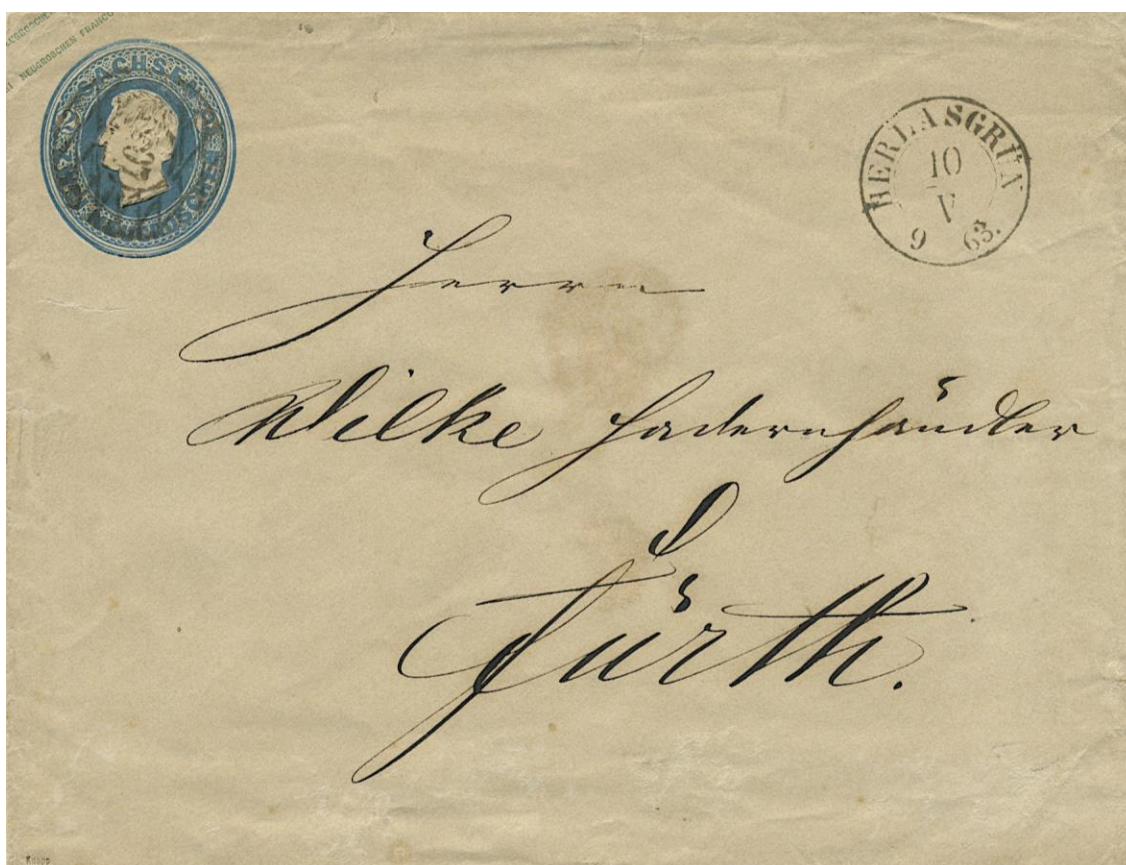 NEUGROSCHEN FRANCO
SACHSEN
HERLASGRÜN
10
V
9 63.
Herrn
Wilke Hadernhändler
Fürth.